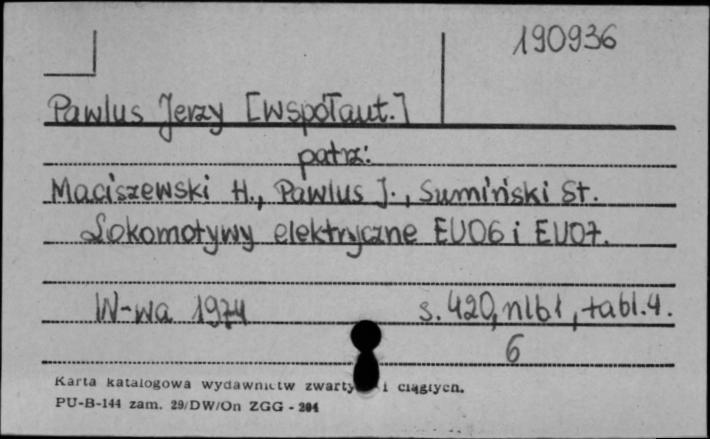 190936
Pawlus Jerzy [współaut.]
patrz:
Maciszewski H., Pawlus J., Sumiński St.
Lokomotywy elektryczne EU06 i EU07.
W-wa 1974 s. 420, nlb 1, tabl. 4.
6
Karta katalogowa wydawnictw zwarty i ciągłych.
PU-B-144 zam. 29/DW/On ZGG - 204